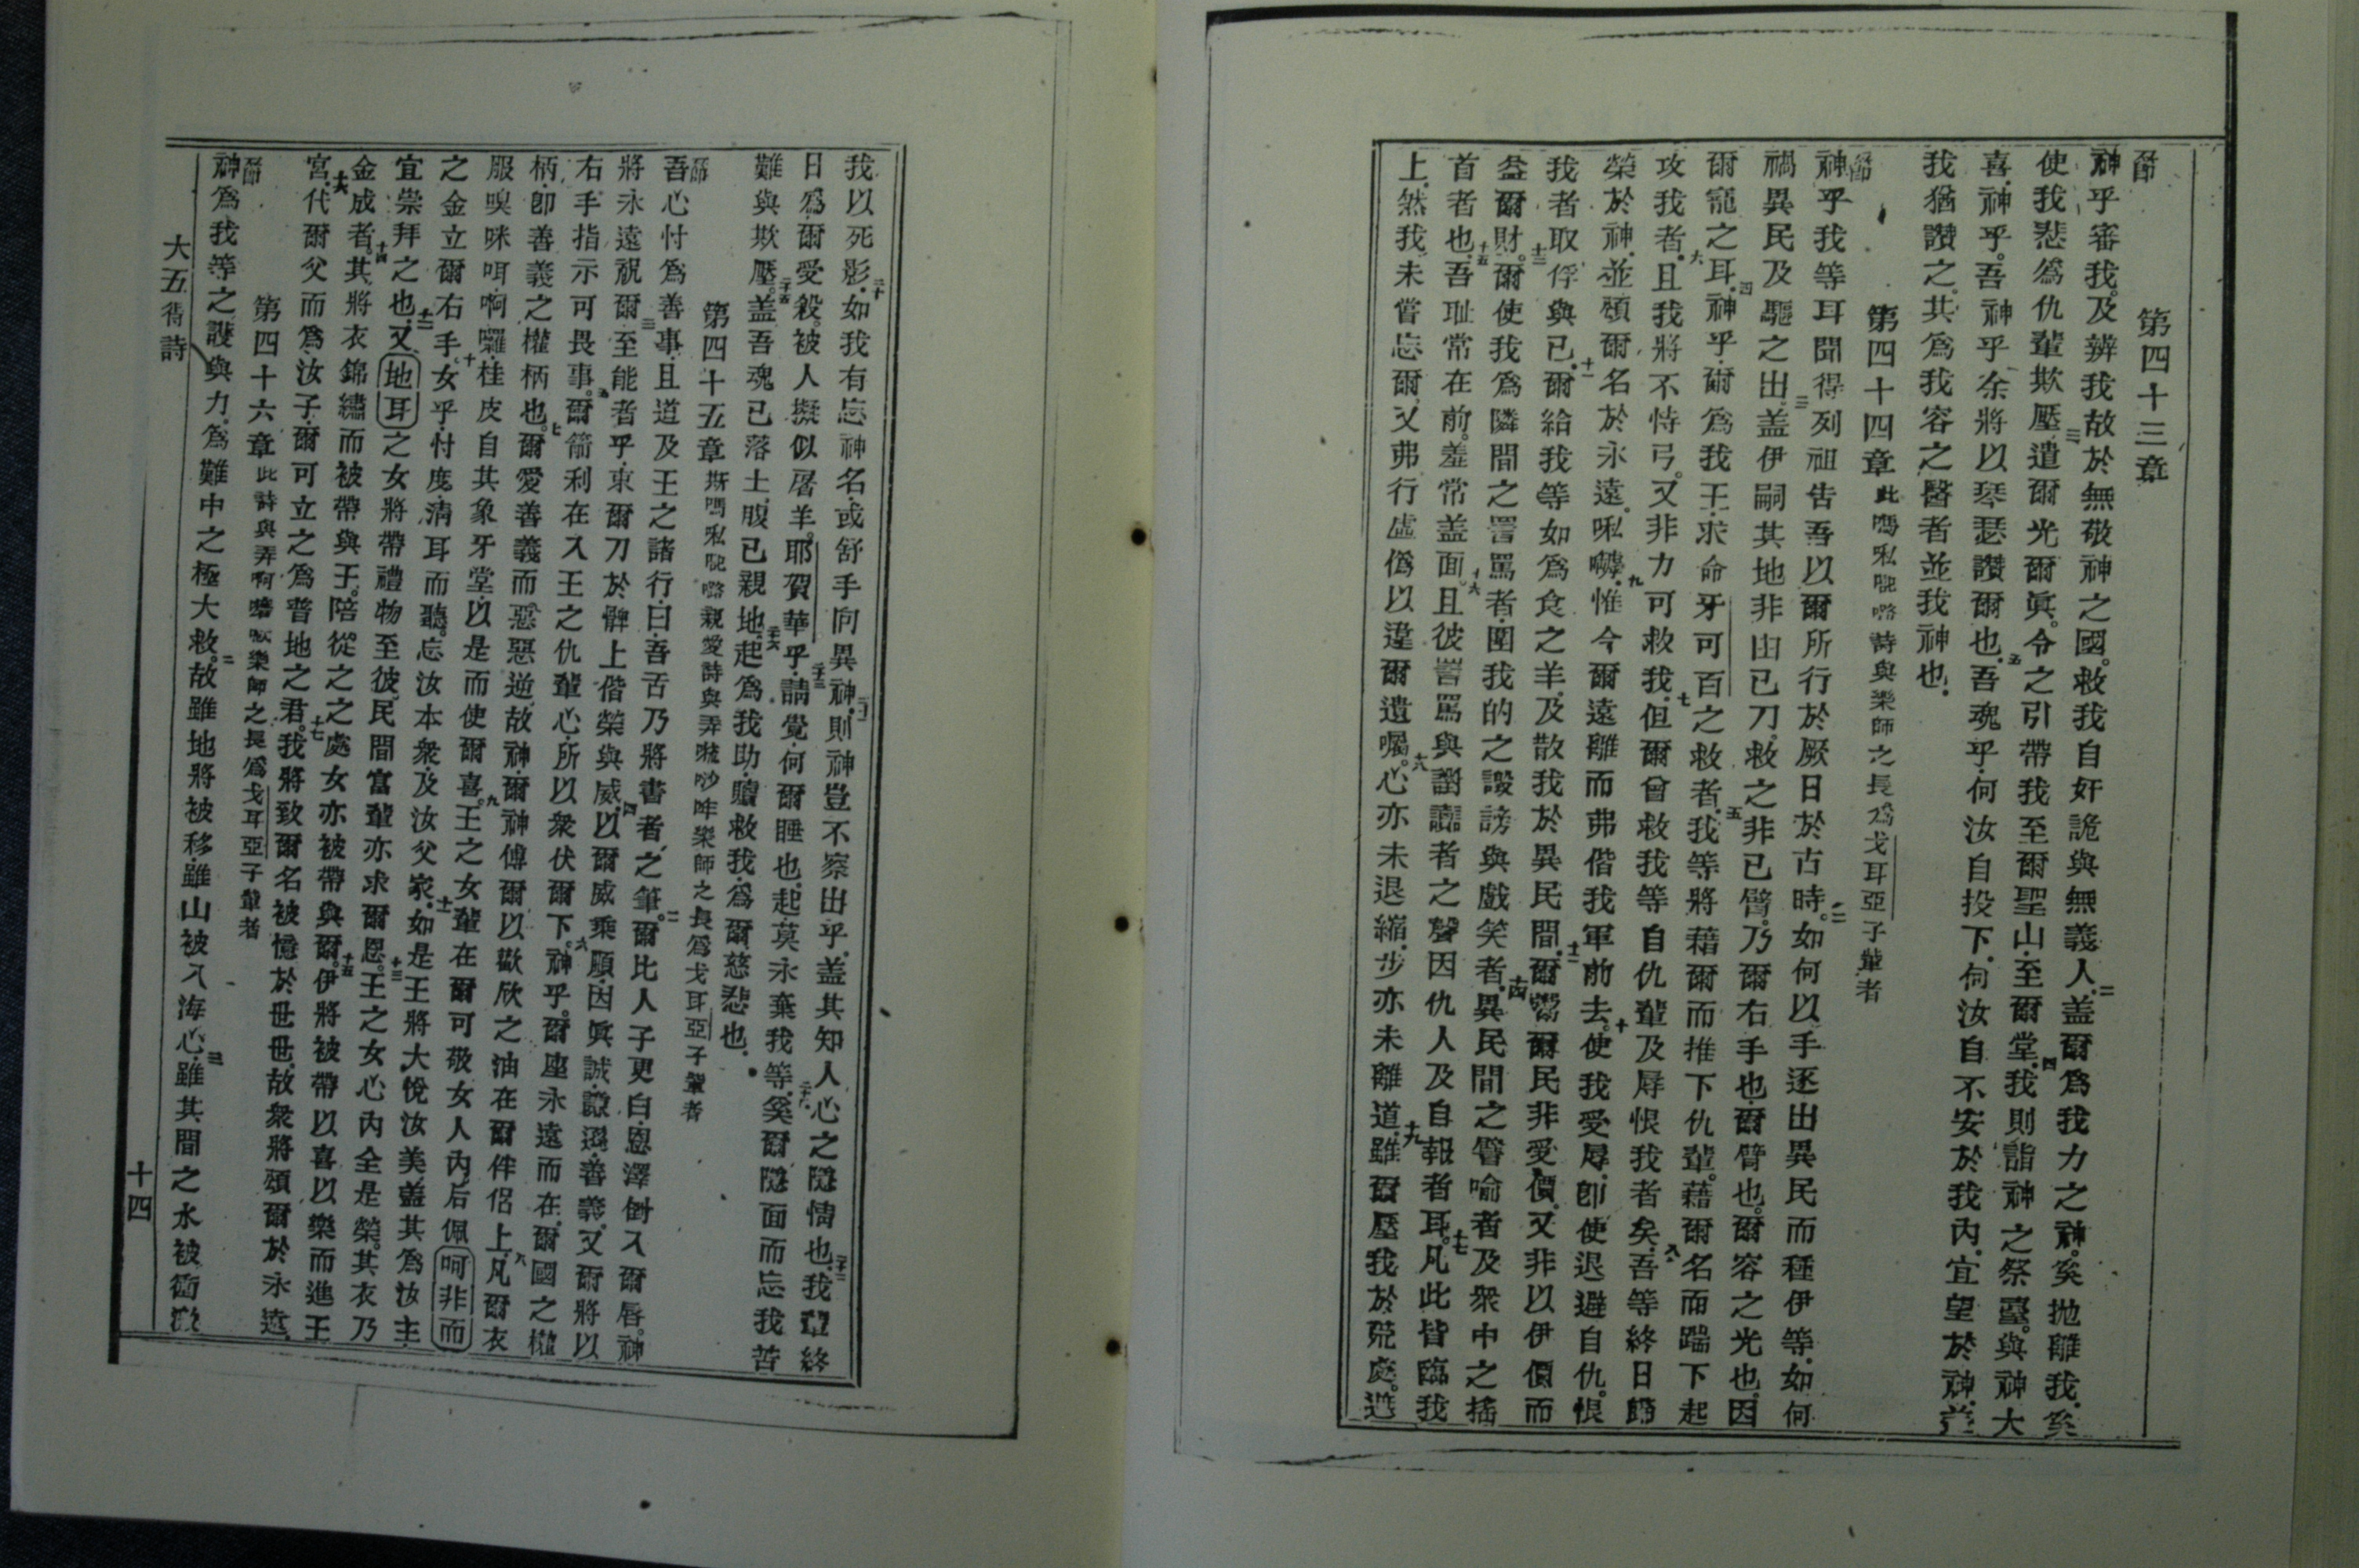 第四十三章
節
神乎審我及辨我故於無敬神之國救我自奸詭與無義人二盖爾爲我力之神奚抛離我奚
使我悲爲仇輩欺壓三遣爾光爾眞令之引帶我至爾聖山至爾堂四我則詣神之祭臺與神大
喜神乎吾神乎余將以琴瑟讚爾也五吾魂乎何汝自投下何汝自不安於我內宜望於神盖
我猶讚之其爲我容之醫者並我神也
第四十四章 此嗎㖠詩與樂師之長爲戈耳亞子輩者
節
神乎我等耳聞得列祖告吾以爾所行於厥日於古時二如何以手逐出異民而種伊等如何
禍異民及驅之出三盖伊嗣其地非由已刀救之非已臂乃爾右手也爾臂也爾容之光也因
爾寵之耳四神乎爾爲我王求命牙可百之救者五我等將藉爾而推下仇輩藉爾名而踹下起
攻我者六且我將不恃弓又非力可救我七但爾曾救我等自仇輩及辱恨我者矣八吾等終日歸
榮於神並頌爾名於永遠九惟今爾遠離而弗偕我軍前去十使我受辱卽使退避自仇恨
我者取俘與已十一爾給我等如爲食之羊及散我於異民間十二爾鬻爾民非受價又非以伊價而
益爾財十三爾使我爲隣間之詈罵者圍我的之譭謗與戲笑者十四異民間之譬喻者及衆中之搖
首者也十五吾耻常在前羞常盖面十六且彼詈罵與謝讟者之聲因仇人及自報者耳十七凡此皆臨我
上然我未嘗忘爾又弗行虛僞以違爾遺囑十八心亦未退縮步亦未離道十九雖爾壓我於荒處遮
我以死影二十如我有忘神名或舒手向異神則神豈不察出乎盖其知人心之隱情也我輩終
日爲爾受殺被人擬似屠羊耶賀華乎請覺何爾睡也起莫永棄我等奚爾隱面而忘我苦
難與欺壓二十五盖吾魂已落土腹已親地二十六起爲我助贖救我爲爾慈悲也
第四十五章 斯嗎㖠親愛詩與樂師之長爲戈耳亞子輩者
節
吾心忖爲善事且道及王之諸行曰吾舌乃將書者之筆二爾比人子更白恩澤倒入爾唇神
將永遠祝爾三至能者乎束爾刀於髀上偕榮與威四以爾威乘順因眞誠謙遜善義又爾將以
右手指示可畏事五爾箭利在入王之仇輩心所以衆伏爾下六神乎爾座永遠而在爾國之權
柄卽善義之權柄也七爾愛善義而惡惡逆故神爾神傅爾以歡欣之油在爾伴侶上八凡爾衣
服嗅咪咡啊囉桂皮自其象牙堂以是而使爾喜九王之女輩在爾可敬女人內后佩呵非而
之金立爾右手十女乎忖度淸耳而聽忘汝本衆及汝父家十一如是王將大悅汝美盖其爲汝主
宜崇拜之也十二又地耳之女將帶禮物至彼民間富輩亦求爾恩十三王之女心內全是榮其衣乃
金成者十四其將衣錦繡而被帶與王陪從之之處女亦被帶與爾十五伊將被帶以喜以樂而進王
宮十六代爾父而爲汝子爾可立之爲普地之君十七我將致爾名被憶於世世故衆將頌爾於永遠
第四十六章 此詩與弄樂師之長爲戈耳亞子輩者
節
神爲我等之護與力爲難中之極大救二故雖地將被移雖山被入海心三雖其間之水被衝激
大五 詩
十四